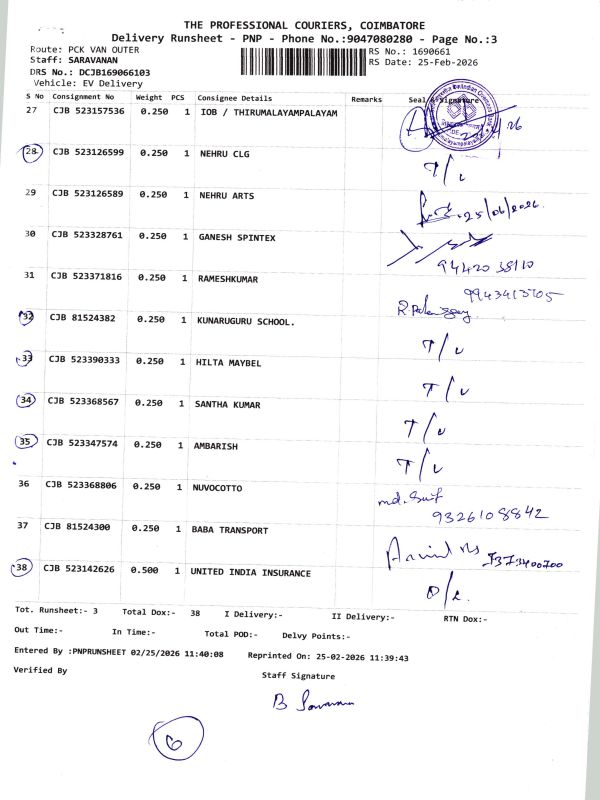 THE PROFESSIONAL COURIERS, COIMBATORE
Delivery Runsheet - PNP - Phone No.:9047080280 - Page No.:3
Route: PCK VAN OUTER RS No.: 1690661
Staff: SARAVANAN RS Date: 25-Feb-2026
DRS No.: DCJB169066103
Vehicle: EV Delivery
S No Consignment No Weight PCS Consignee Details Remarks Seal & Signature
27 CJB 523157536 0.250 1 IOB / THIRUMALAYAMPALAYAM
28 CJB 523126599 0.250 1 NEHRU CLG T/L
29 CJB 523126589 0.250 1 NEHRU ARTS
30 CJB 523328761 0.250 1 GANESH SPINTEX
31 CJB 523371816 0.250 1 RAMESHKUMAR
32 CJB 81524382 0.250 1 KUNARUGURU SCHOOL. T/L
33 CJB 523390333 0.250 1 HILTA MAYBEL T/L
34 CJB 523368567 0.250 1 SANTHA KUMAR T/L
35 CJB 523347574 0.250 1 AMBARISH T/L
36 CJB 523368806 0.250 1 NUVOCOTTO
9326108842
37 CJB 81524300 0.250 1 BABA TRANSPORT
38 CJB 523142626 0.500 1 UNITED INDIA INSURANCE D/L
Tot. Runsheet:- 3 Total Dox:- 38 I Delivery:- II Delivery:- RTN Dox:-
Out Time:- In Time:- Total POD:- Delvy Points:-
Entered By :PNPRUNSHEET 02/25/2026 11:40:08 Reprinted On: 25-02-2026 11:39:43
Verified By Staff Signature
6